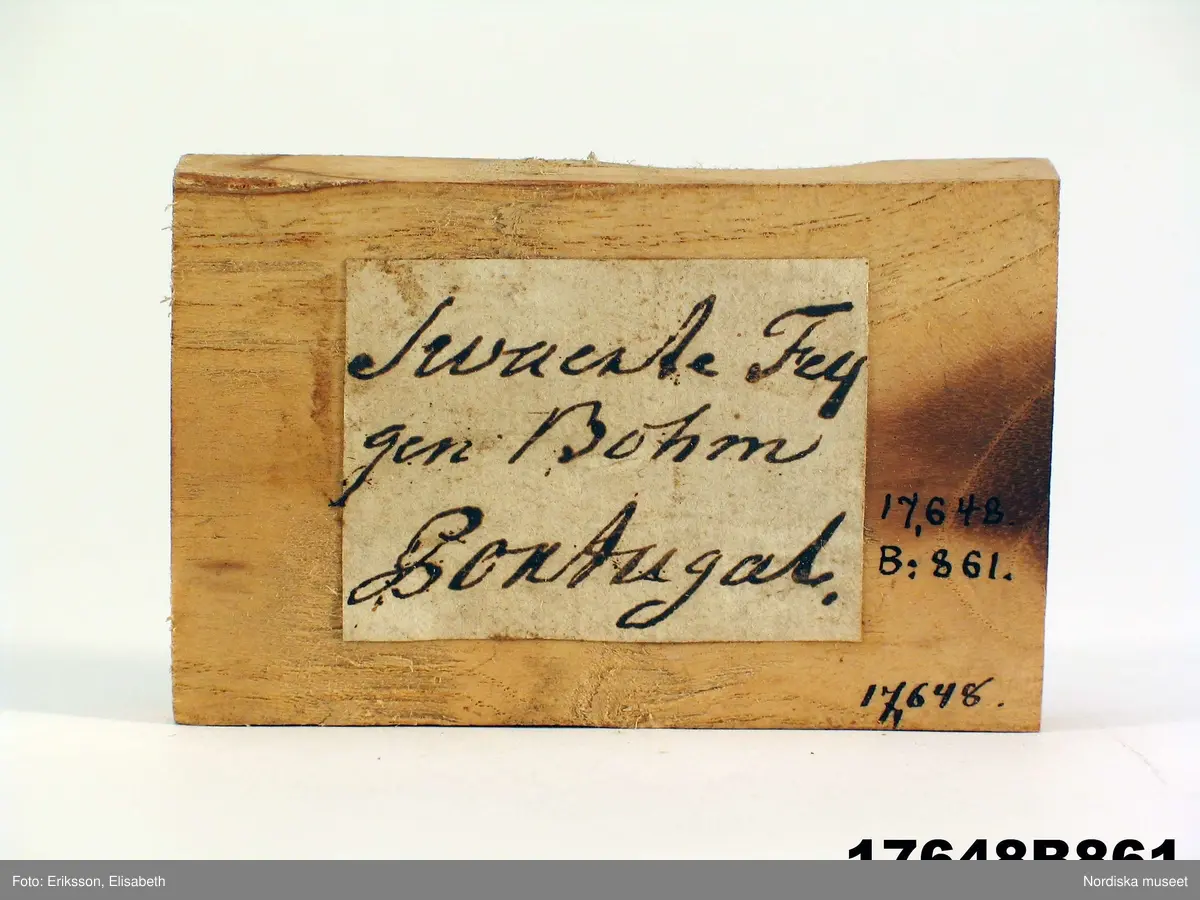 Swaerte Fey
gen Bohm
Portugal.
17,648.
B: 861.
17,648.
17648B861
Foto: Eriksson, Elisabeth
Nordiska museet